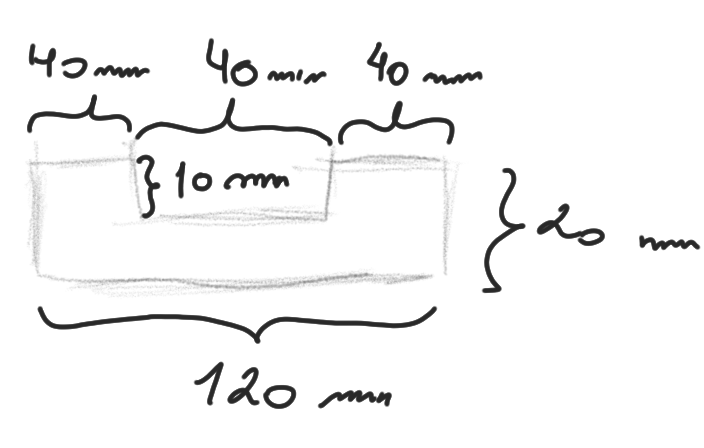 40 mm 40 mm 40 mm
10 mm
20 mm
120 mm